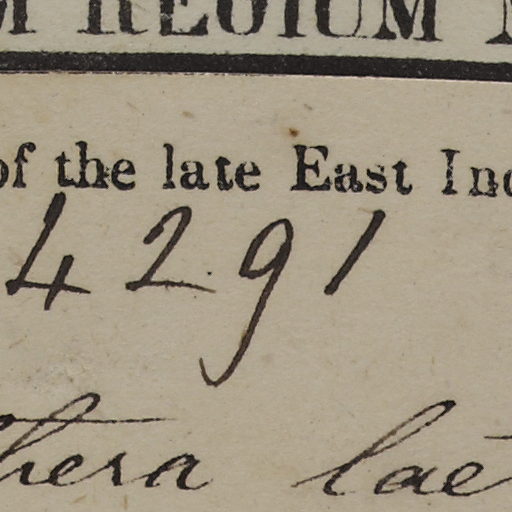 REGIUM
of the late East Ind
4291
thera lae